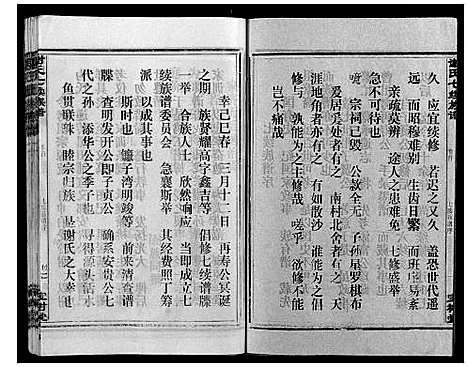 久 应宜续修 若迟之又久 盖恐世代遥
远 而昭穆难别 生齿日繁 而班序易紊
亲疏莫辨 途人之患难免 七修盛举
急不可待也
宗祠已毁 公款全无 子孙星罗棋布
爱居爱处者有之 南村北舍者有之 天
涯地角者有之 有如散沙 谁能为之倡
修 孰能为之主修哉 嗟乎 欲修不能
岂不痛哉
幸己巳春 三月十二日 再寿公冥诞
之期 族贤耀高字鑫吉等 倡修七续谱牒
一举 合族人士 欣然响应 当即成立七
续族谱委员会 急襄斯举 其经费照丁筹
派 以成其事也
斯时也 镰子湾明竣等 前来清查谱
牒 查明发开公即子贞公 确系安贵公七
代之孙 添华公之季子也 寻得源头活水
鱼贯联珠 睦宗归族 是谢氏之大幸也